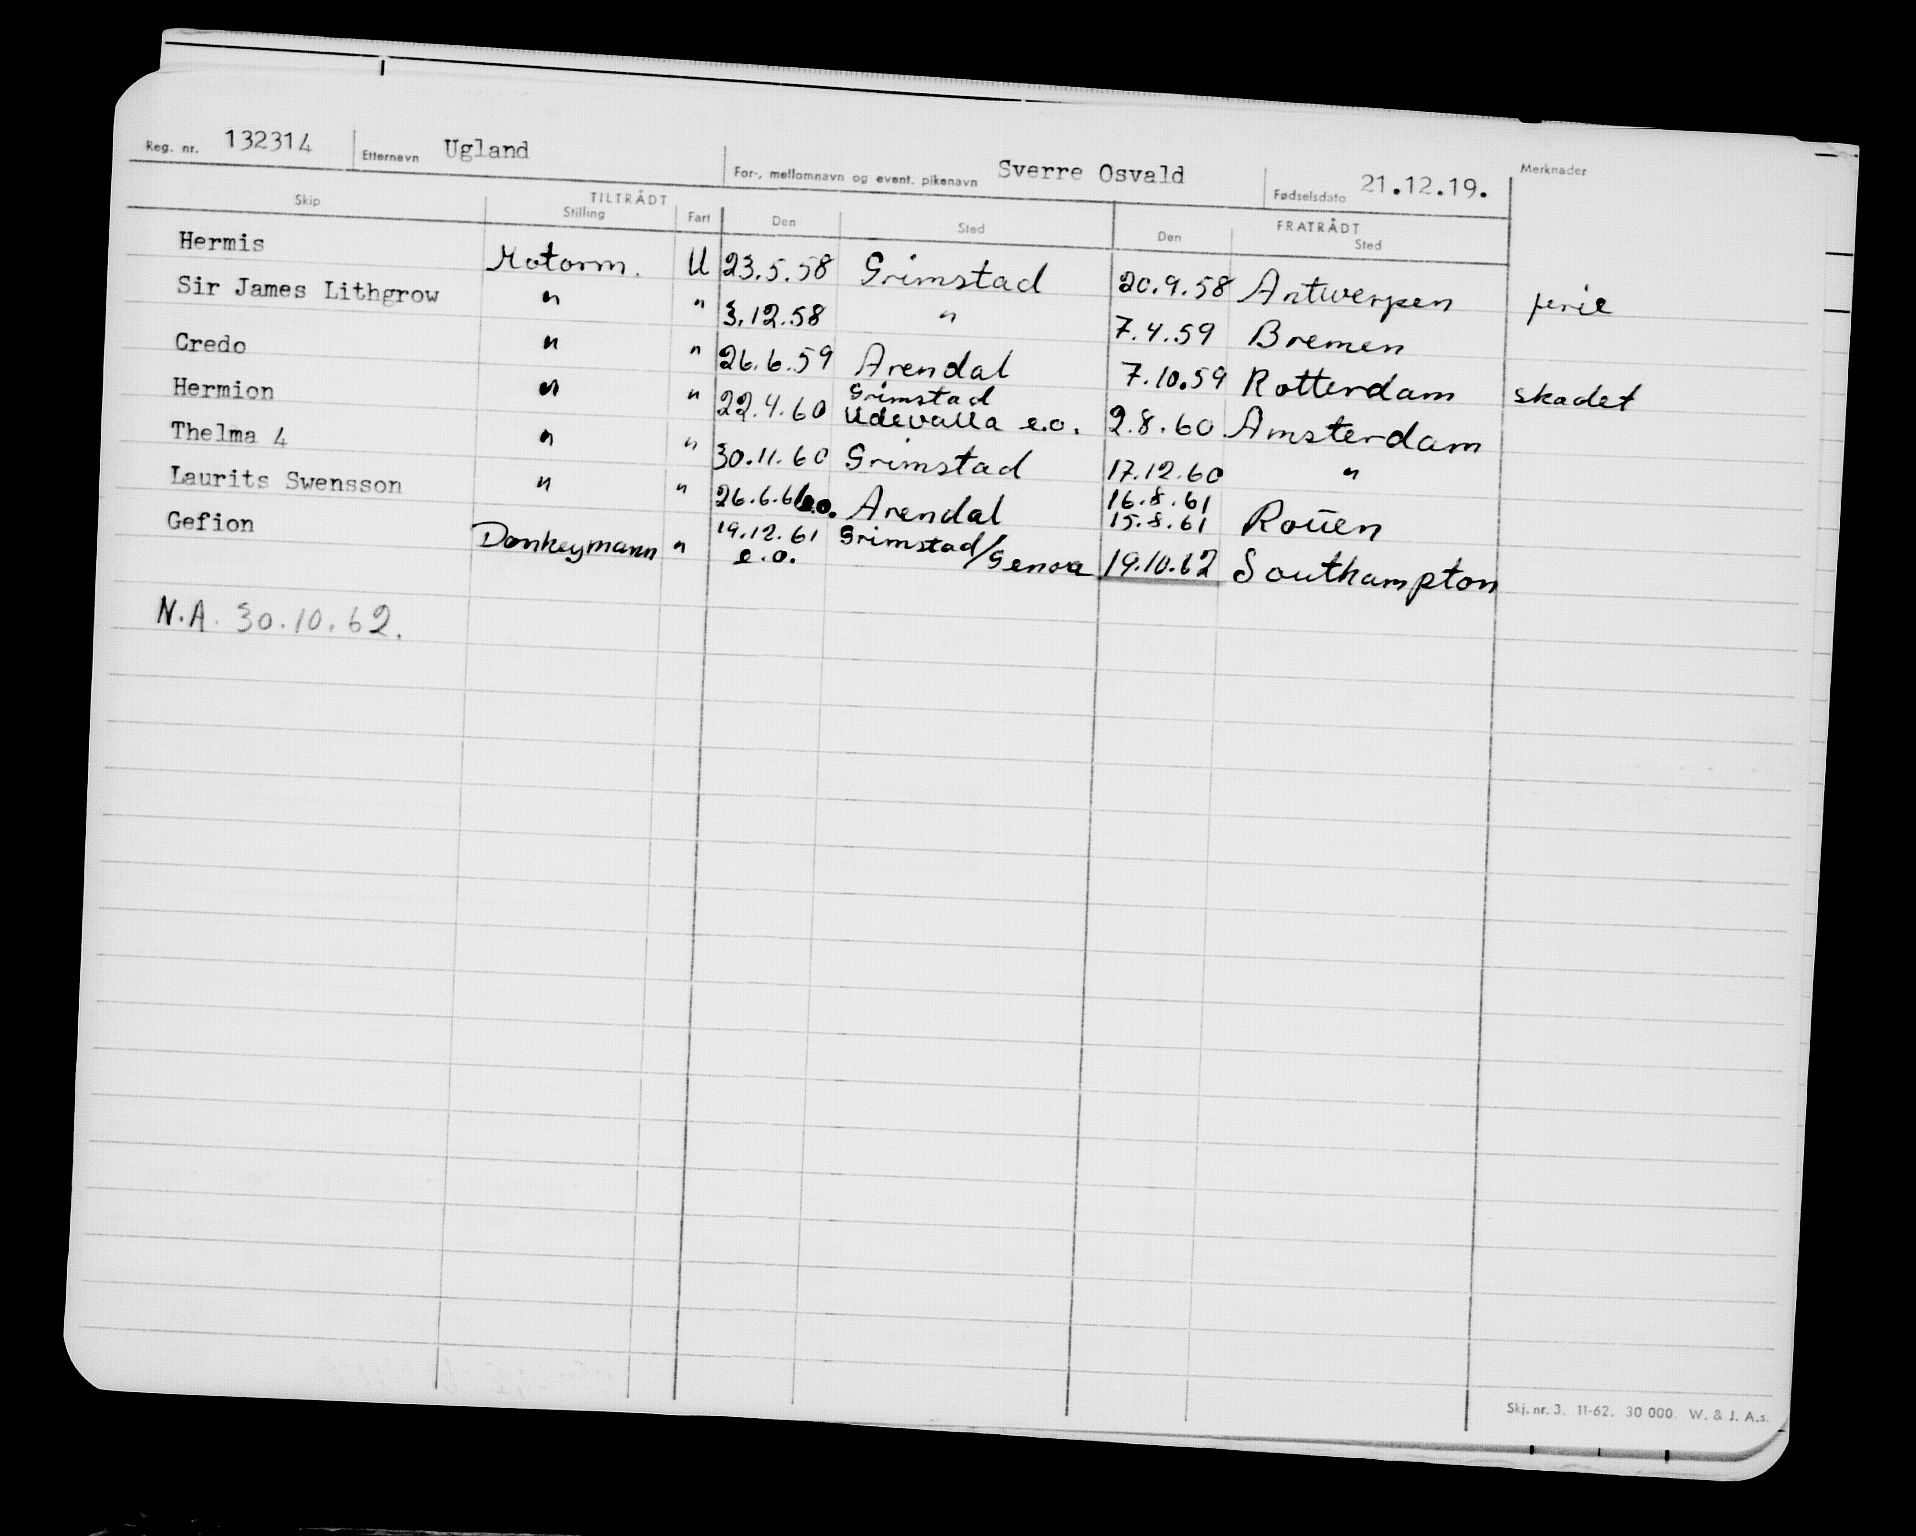 Reg. nr. 132314 Etternavn Ugland For-, mellomnavn og event. pikenavn Sverre Osvald Fødselsdato 21.12.19. Merknader
Skip TILTRÅDT Stilling Fart Den Sted FRATRÅDT Den Sted
Hermis Motorm. U 23.5.58 Grimstad 20.9.58 Antwerpen ferie
Sir James Lithgrow " " 3.12.58 " 7.4.59 Bremen
Credo " " 26.6.59 Arendal 7.10.59 Rotterdam skadet
Hermion " " 22.4.60 Grimstad Udevalla e.o. 2.8.60 Amsterdam
Thelma 4 " " 30.11.60 Grimstad 17.12.60 "
Laurits Swensson " " 26.6.61 e.o. Arendal 16.8.61 15.8.61 Rouen
Gefion Donkeymann " 19.12.61 e.o. Grimstad/Genoa 19.10.62 Southampton
N.A. 30.10.62.
Skj. nr. 3. 11-62. 30 000. W. & J. A.s.